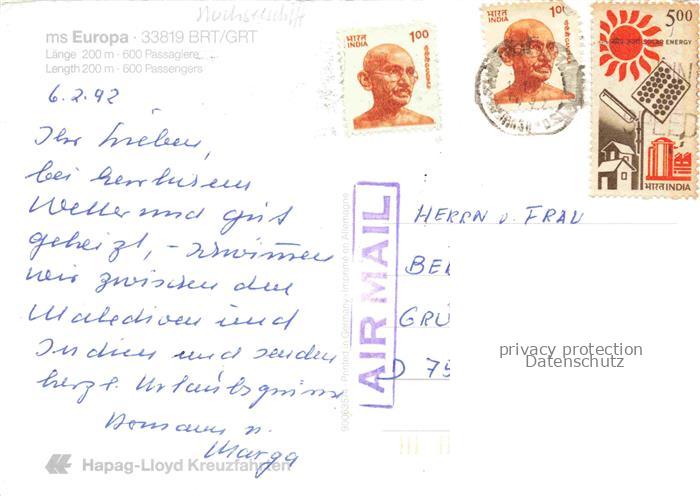 ms Europa · 33819 BRT/GRT
Länge 200 m · 600 Passagiere
Length 200 m · 600 Passengers
6.2.92
Ihr Lieben,
bei herrlichem
Wetter und gut
geheizt, – schwimmen
wir zwischen den
Malediven und
Indien und senden
herzl. Urlaubsgrüsse
Hermann u.
Marga
Hapag-Lloyd Kreuzfahrten
Printed in Germany · Imprimé en Allemagne
AIR MAIL
भारत INDIA 1.00
भारत INDIA 1.00
5.00
SOLAR ENERGY
भारत INDIA
HERRN u. FRAU
BE
GRÜ
D 75
privacy protection
Datenschutz